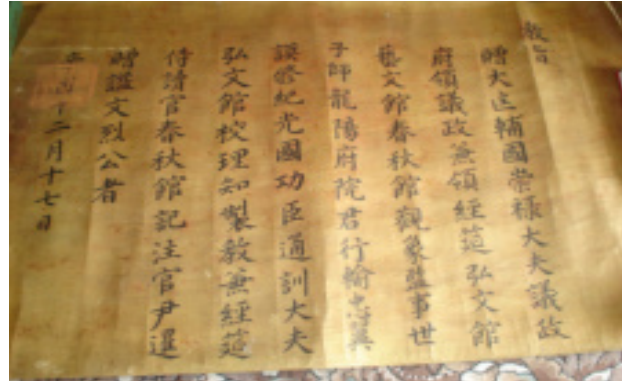 敎旨
贈大匡輔國崇祿大夫議政
府領議政兼領經筵弘文館
藝文館春秋館觀象監事世
子師龍陽府院君行輸忠翼
謨修紀光國功臣通訓大夫
弘文館校理知製敎兼經筵
侍讀官春秋館記注官尹暹
贈諡文烈公者
十二月十七日